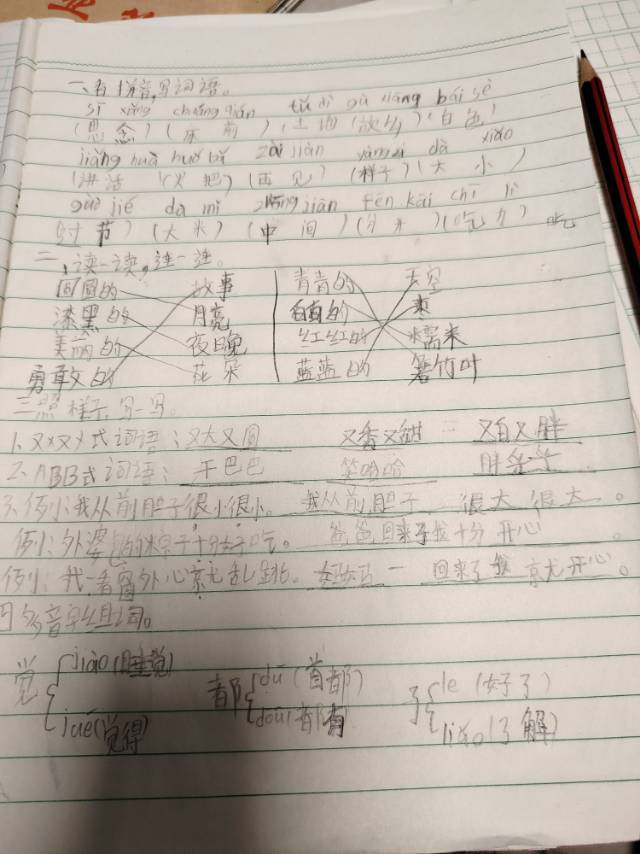 一、看拼音,写词语。
sī xiǎng chuáng qián tǔ dì gù xiāng bái sè
(思念)(床前)(土地)(故乡)(白色)
jiǎng huà huǒ bǎ zài jiàn yàng zi dà xiǎo
(讲话)(火把)(再见)(样子)(大 小)
guò jié dà mǐ zhōng jiān fēn kāi chī lì
(过节)(大米)(中间)(分开)(吃力) 吃
二、读一读,连一连。
圆圆的 故事 青青的 天空
漆黑的 月亮 白白的 枣
美丽的 夜晚 红红的 糯米
勇敢的 花朵 蓝蓝的 箬竹叶
三、照样子,写一写。
1.又x又y式词语:又大又圆 又香又甜 又白又胖
2.ABB式词语:干巴巴 笑哈哈 胖乎乎
3、例小:我从前胆子很小很小。 我从前胆子 很大很大。
例:外婆包的粽子十分好吃。 爸爸回来了我十分开心。
例:我一看窗外心就乱跳。妈妈一 回来了我就开心。
四多音字组词。
觉 jiào(睡觉) 都 dū(首都) 了 le(好了)
jué(觉得) dōu(都有) liǎo(了解)